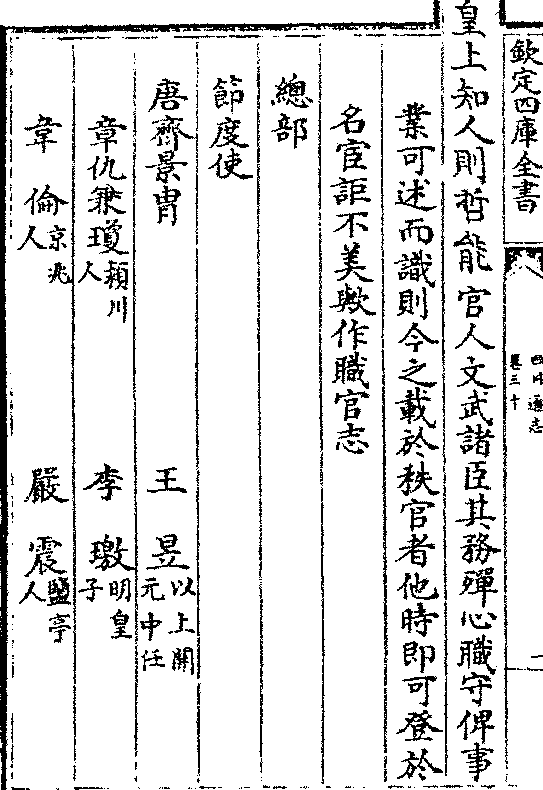 欽定四庫全書
四川通志
卷三十
一
皇上知人則哲能官人文武諸臣其務殫心職守俾事
業可述而識則今之載於秩官者他時即可登於
名宦詎不美歟作職官志
總部
節度使
唐齊景胄 王昱以上開元中任
章仇兼瓊潁川人 李璬明皇子
韋倫京兆人 嚴震鹽亭人